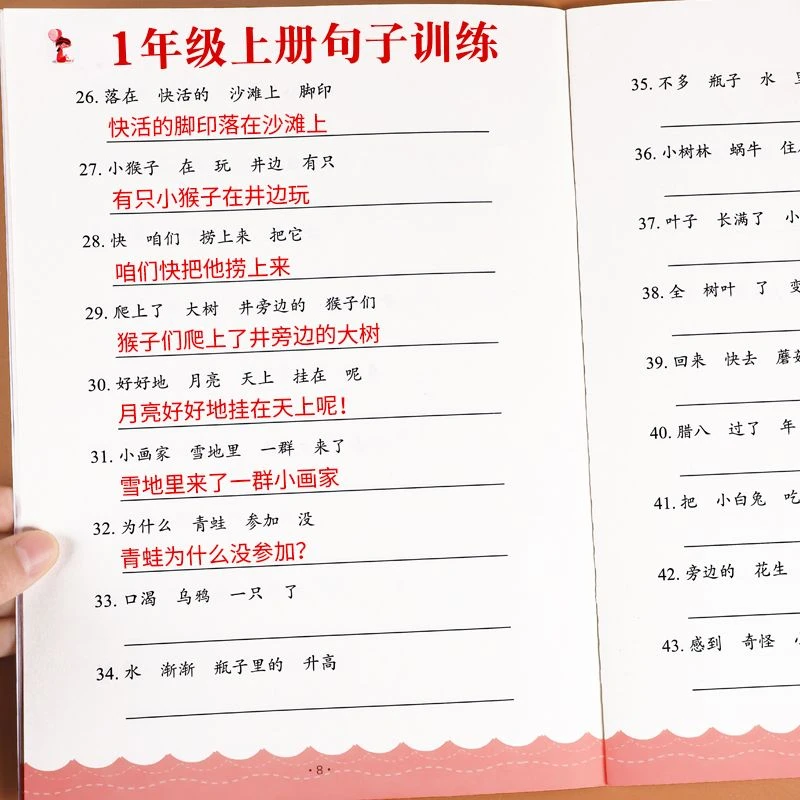 1年级上册句子训练
26. 落在 快活的 沙滩上 脚印
快活的脚印落在沙滩上
27. 小猴子 在 玩 井边 有只
有只小猴子在井边玩
28. 快 咱们 捞上来 把它
咱们快把他捞上来
29. 爬上了 大树 井旁边的 猴子们
猴子们爬上了井旁边的大树
30. 好好地 月亮 天上 挂在 呢
月亮好好地挂在天上呢!
31. 小画家 雪地里 一群 来了
雪地里来了一群小画家
32. 为什么 青蛙 参加 没
青蛙为什么没参加?
33. 口渴 乌鸦 一只 了
34. 水 渐渐 瓶子里的 升高
·8·
35. 不多 瓶子 水
36. 小树林 蜗牛 住
37. 叶子 长满了 小
38. 全 树叶 了 变
39. 回来 快去 蘑菇
40. 腊八 过了 年
41. 把 小白兔 吃
42. 旁边的 花生
43. 感到 奇怪